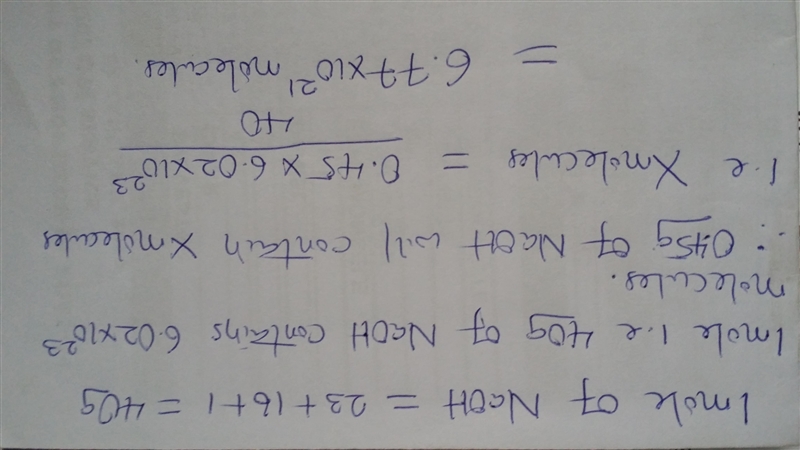 1 mole of NaOH = 23+16+1 = 40g
1 mole i.e 40g of NaOH contains 6.02×10²³
molecules.
∴ 0.45g of NaOH will contain X molecules
i.e X molecules = 0.45 × 6.02×10²³
40
= 6.77×10²¹ molecules.